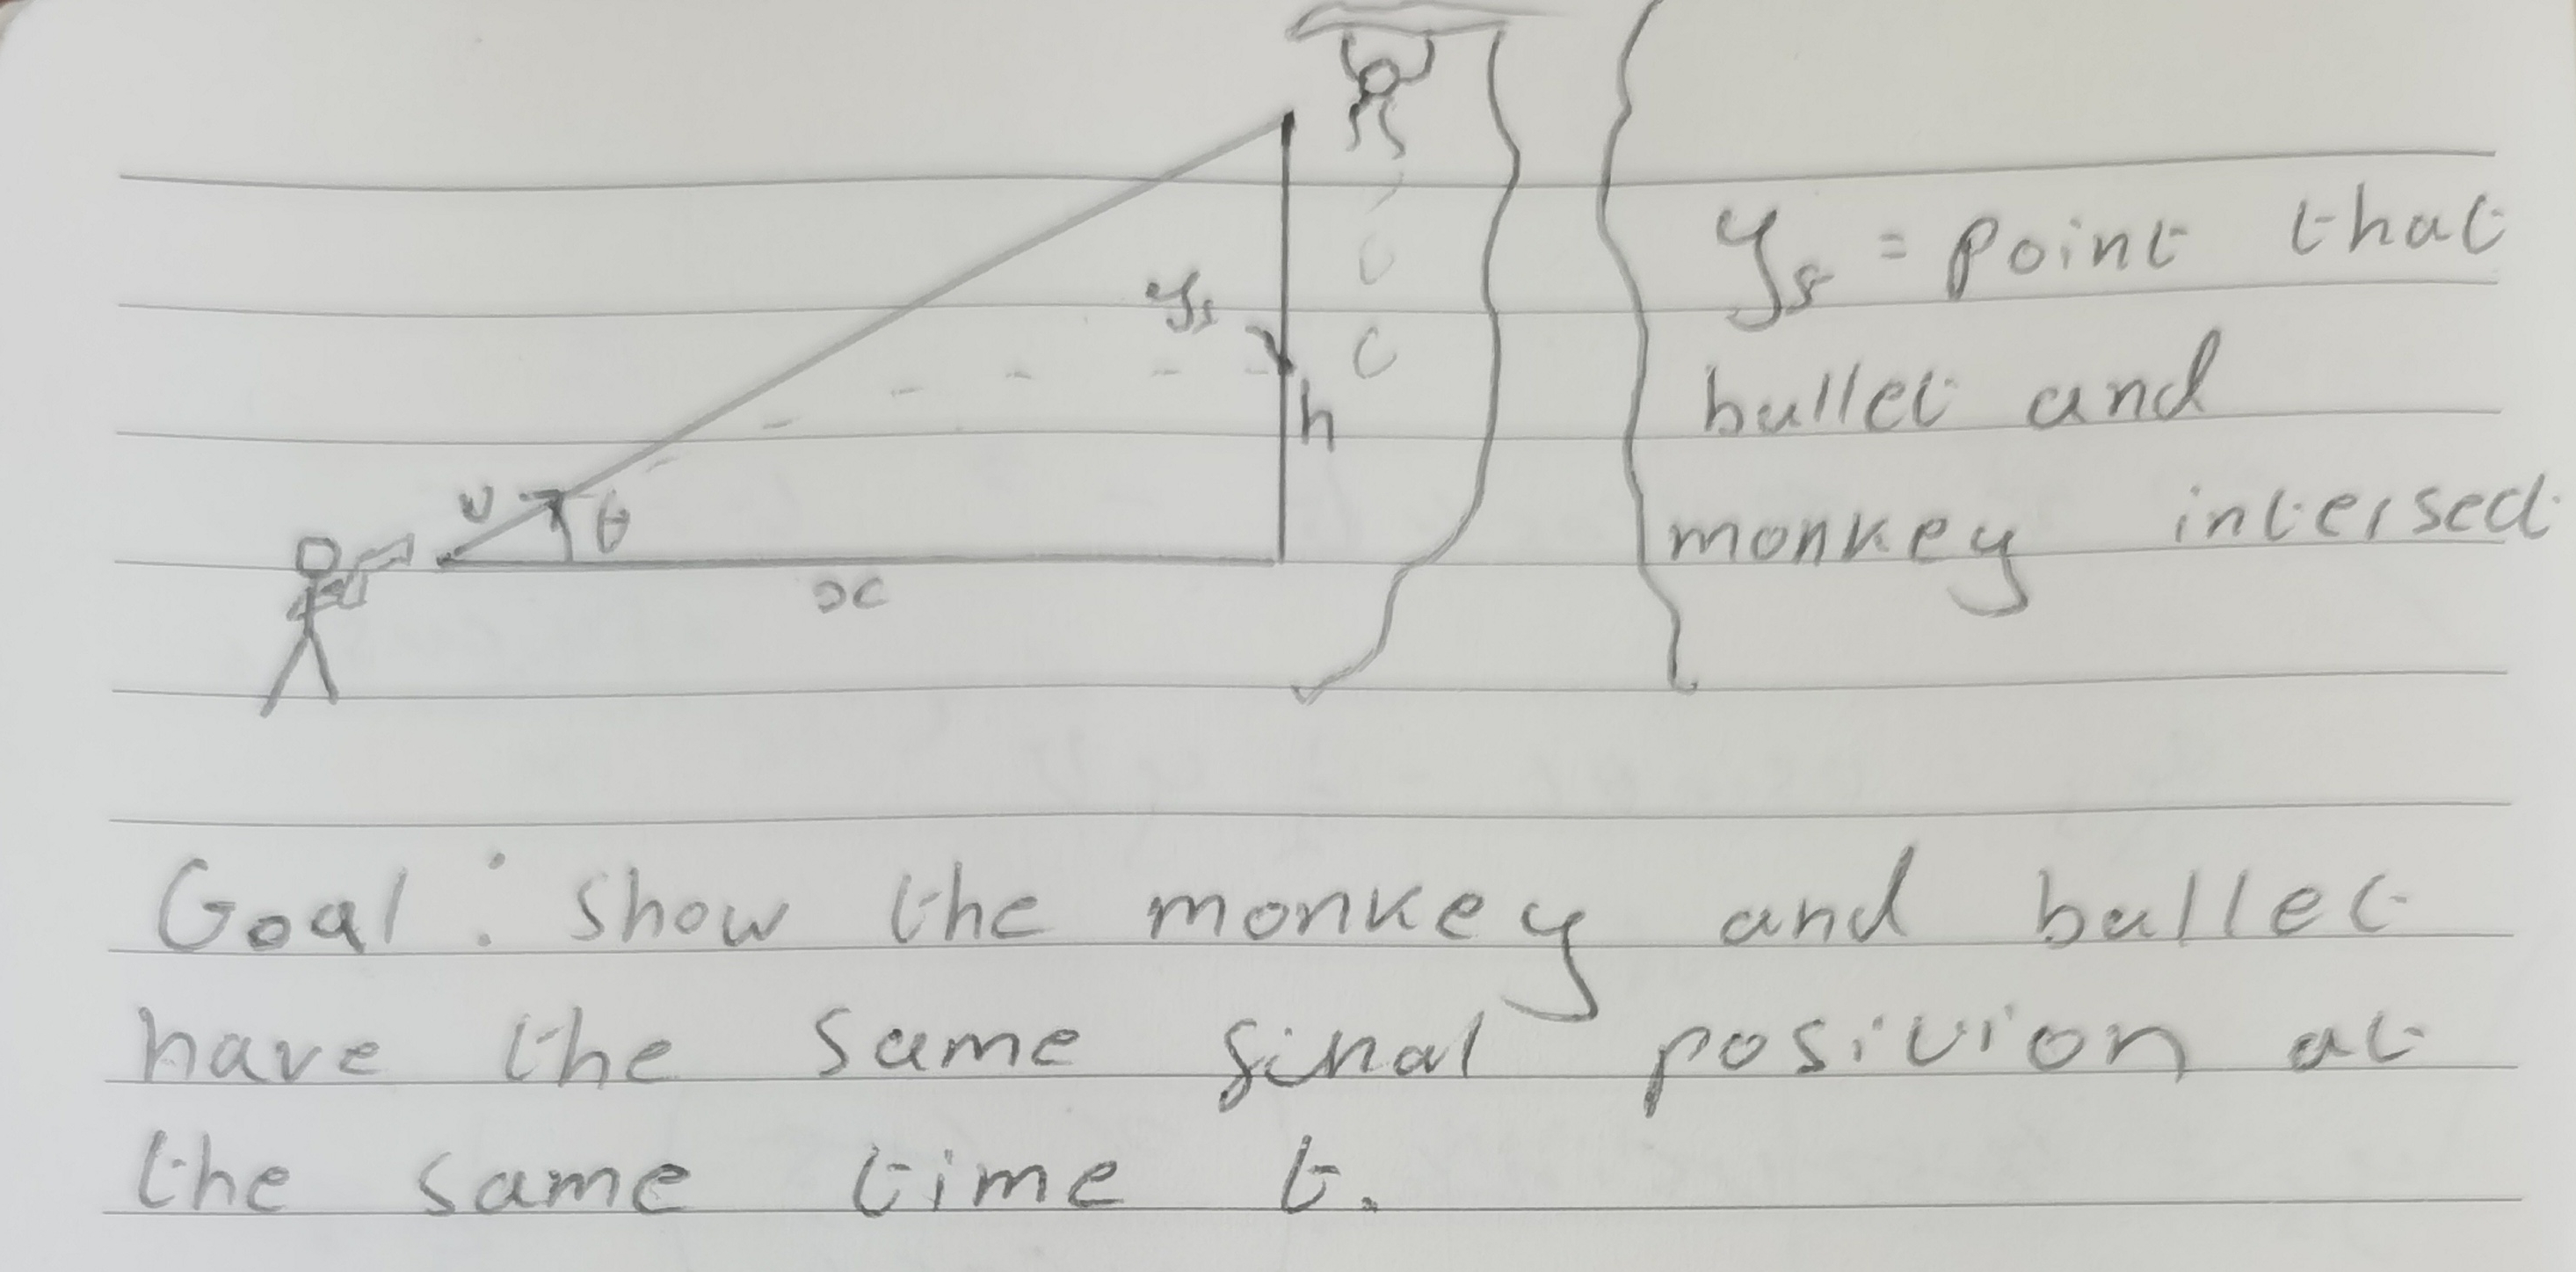 y_s = point that
bullet and
monkey intersect
y_s
h
v
θ
x
Goal: show the monkey and bullet
have the same final position at
the same time t.